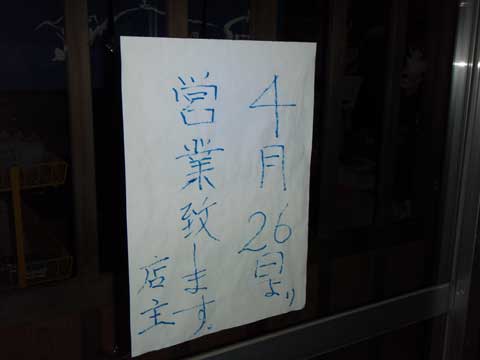 4月26日より
営業致します。
店主